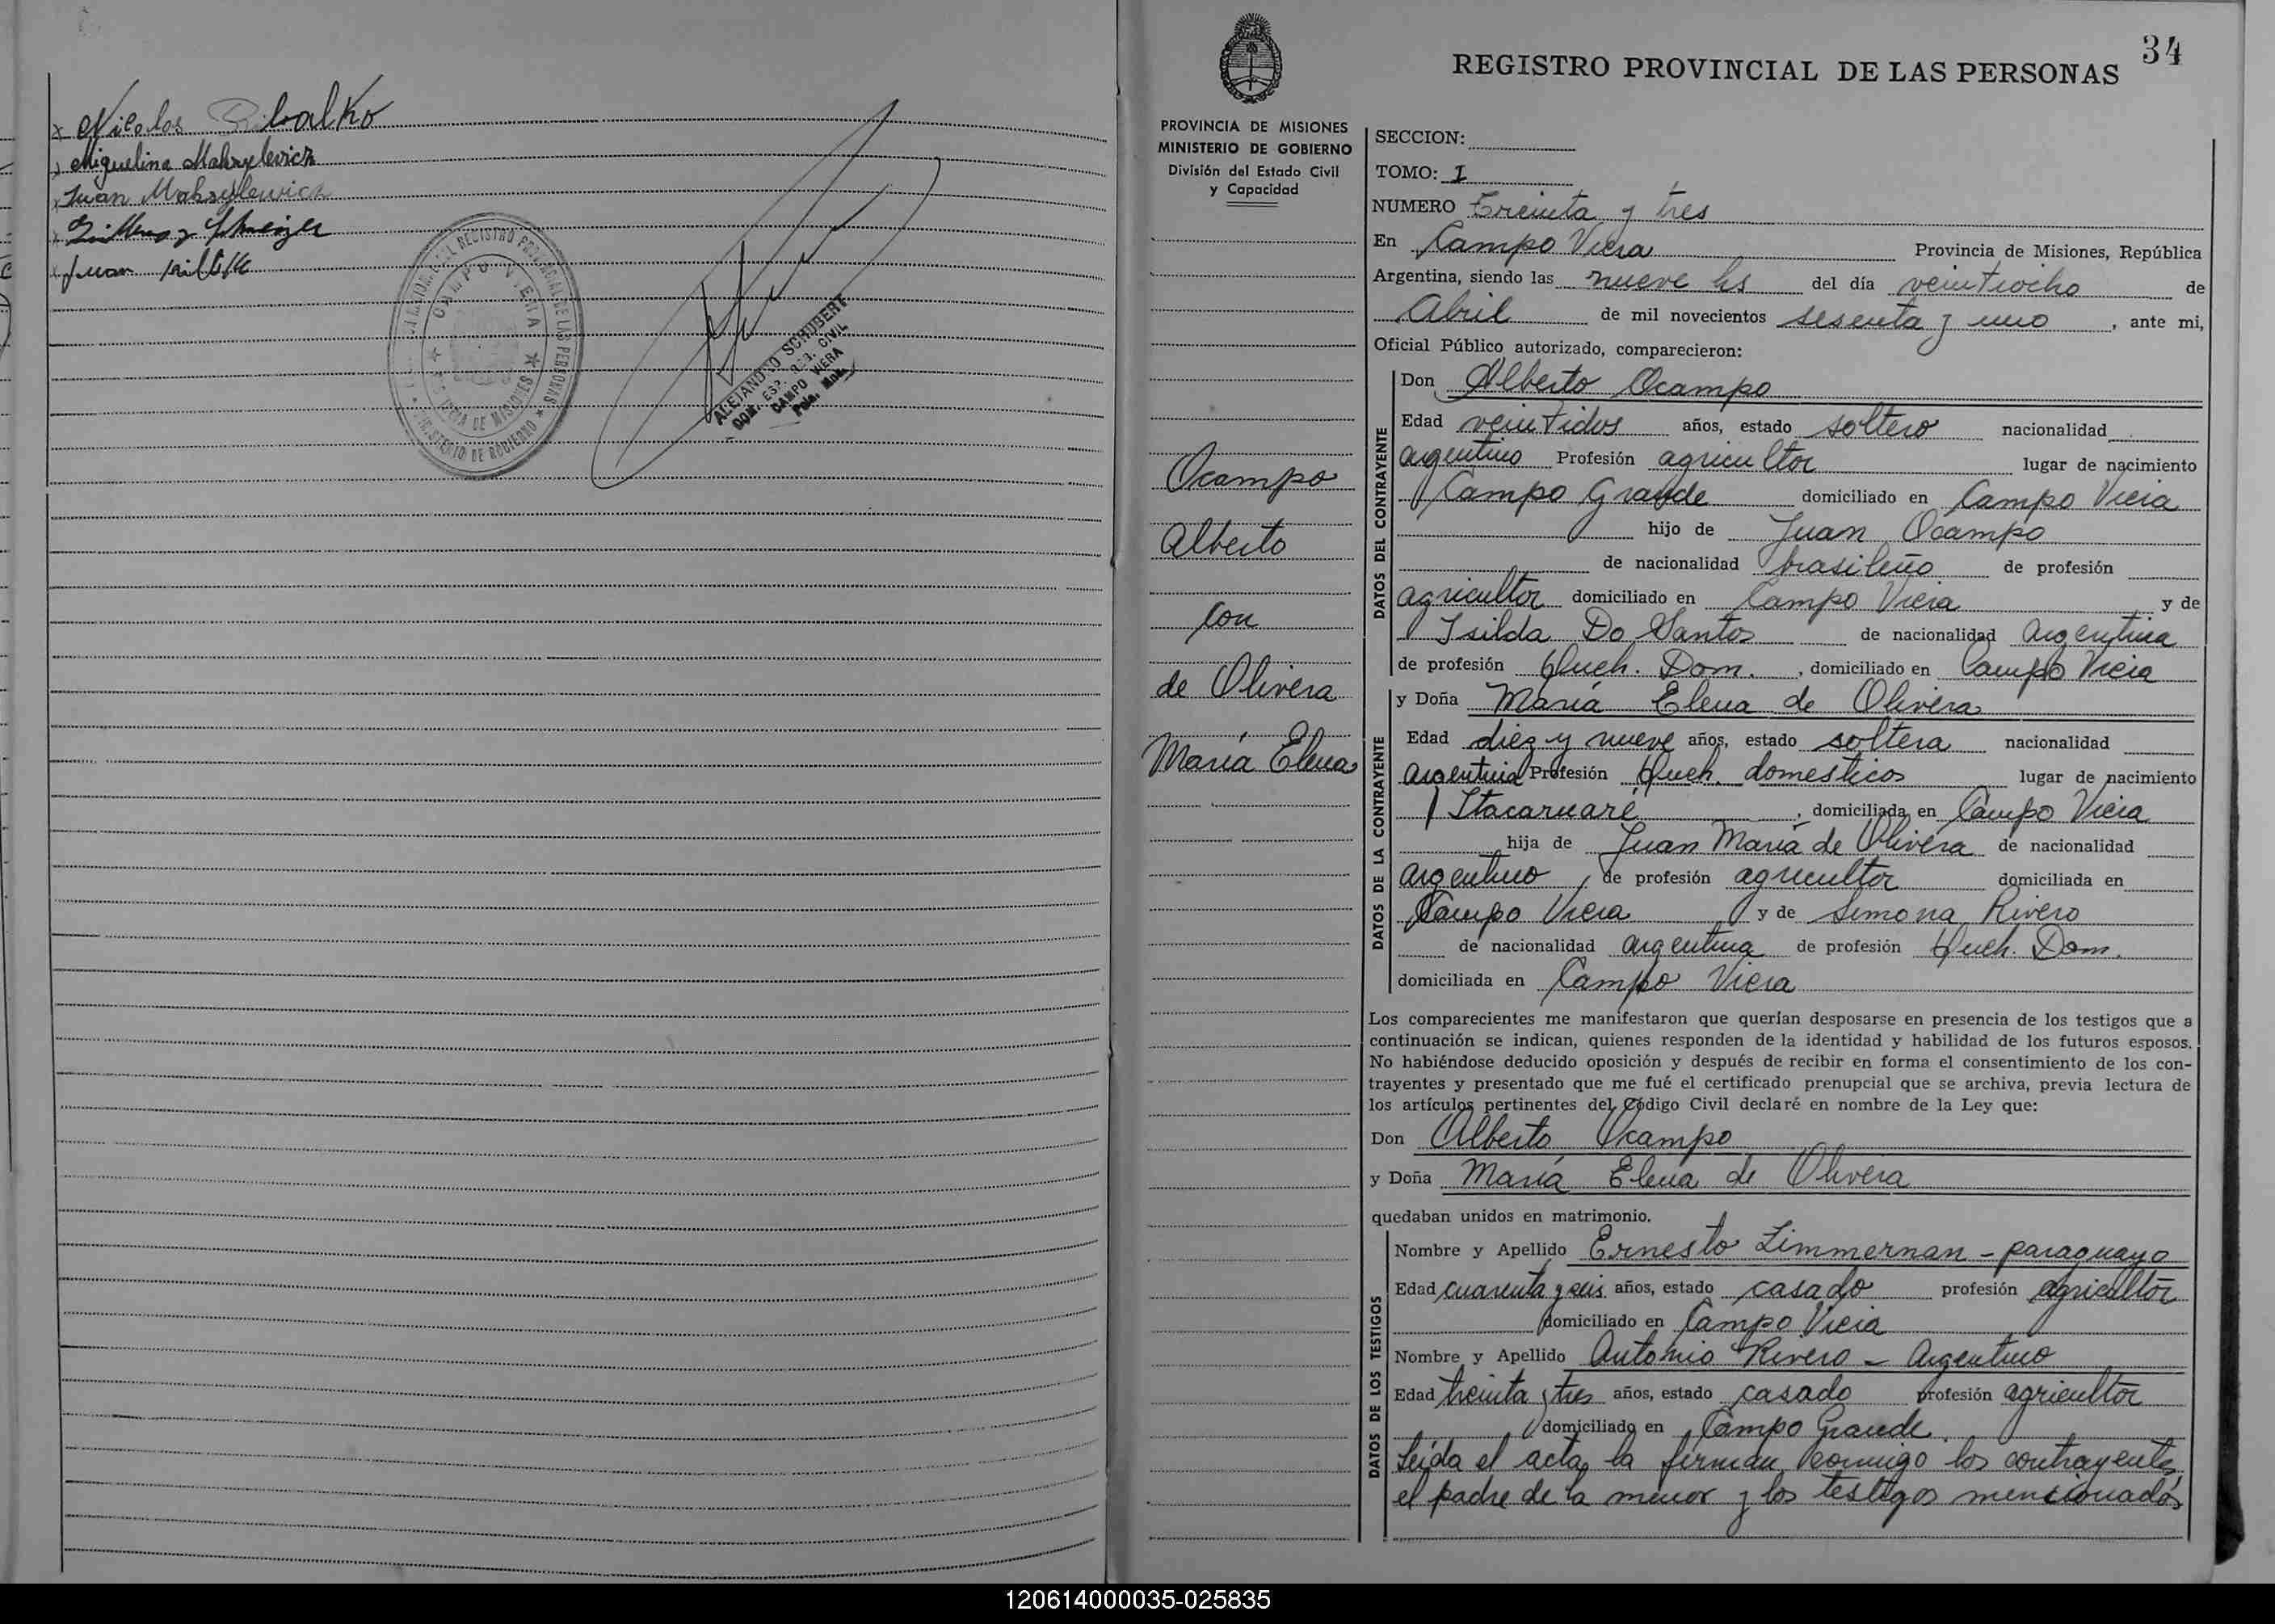 Nicolas
Miguelina
Juan
Juan
REGISTRO PROVINCIAL DE LAS PERSONAS
CAMPO VIERA
PROVINCIA DE MISIONES
MINISTERIO DE GOBIERNO
ALEJANDRO SCHUBERT
CAMPO VIERA
34
REGISTRO PROVINCIAL DE LAS PERSONAS
PROVINCIA DE MISIONES
MINISTERIO DE GOBIERNO
División del Estado Civil
y Capacidad
Ocampo
Alberto
con
de Olivera
María Elena
SECCION:
TOMO: I
NUMERO Treinta y tres
En Campo Viera Provincia de Misiones, República
Argentina, siendo las nueve hs del día veintiocho de
Abril de mil novecientos sesenta y uno, ante mi,
Oficial Público autorizado, comparecieron:
DATOS DEL CONTRAYENTE
Don Alberto Ocampo
Edad veintidos años, estado soltero nacionalidad
argentino Profesión agricultor lugar de nacimiento
Campo Grande domiciliado en Campo Viera
hijo de Juan Ocampo
de nacionalidad brasileño de profesión
agricultor domiciliado en Campo Viera y de
Isilda Do Santos de nacionalidad Argentina
de profesión Queh. Dom., domiciliado en Campo Viera
DATOS DE LA CONTRAYENTE
y Doña María Elena de Olivera
Edad diez y nueve años, estado soltera nacionalidad
argentina Profesión Queh. domesticos lugar de nacimiento
Itacaruaré, domiciliada en Campo Viera
hija de Juan María de Olivera de nacionalidad
argentino, de profesión agricultor domiciliada en
Campo Viera y de Simona Rivero
de nacionalidad argentina de profesión Queh. Dom.
domiciliada en Campo Viera
Los comparecientes me manifestaron que querían desposarse en presencia de los testigos que a
continuación se indican, quienes responden de la identidad y habilidad de los futuros esposos.
No habiéndose deducido oposición y después de recibir en forma el consentimiento de los con-
trayentes y presentado que me fué el certificado prenupcial que se archiva, previa lectura de
los artículos pertinentes del Código Civil declaré en nombre de la Ley que:
Don Alberto Ocampo
y Doña María Elena de Olivera
quedaban unidos en matrimonio.
DATOS DE LOS TESTIGOS
Nombre y Apellido Ernesto Zimmernan - paraguayo
Edad cuarenta y seis años, estado casado profesión agricultor
domiciliado en Campo Viera
Nombre y Apellido Antonio Rivero - Argentino
Edad treinta y tres años, estado casado profesión agricultor
domiciliado en Campo Grande.
Leída el acta, la firman conmigo los contrayentes,
el padre de la menor y los testigos mencionados
120614000035-025835